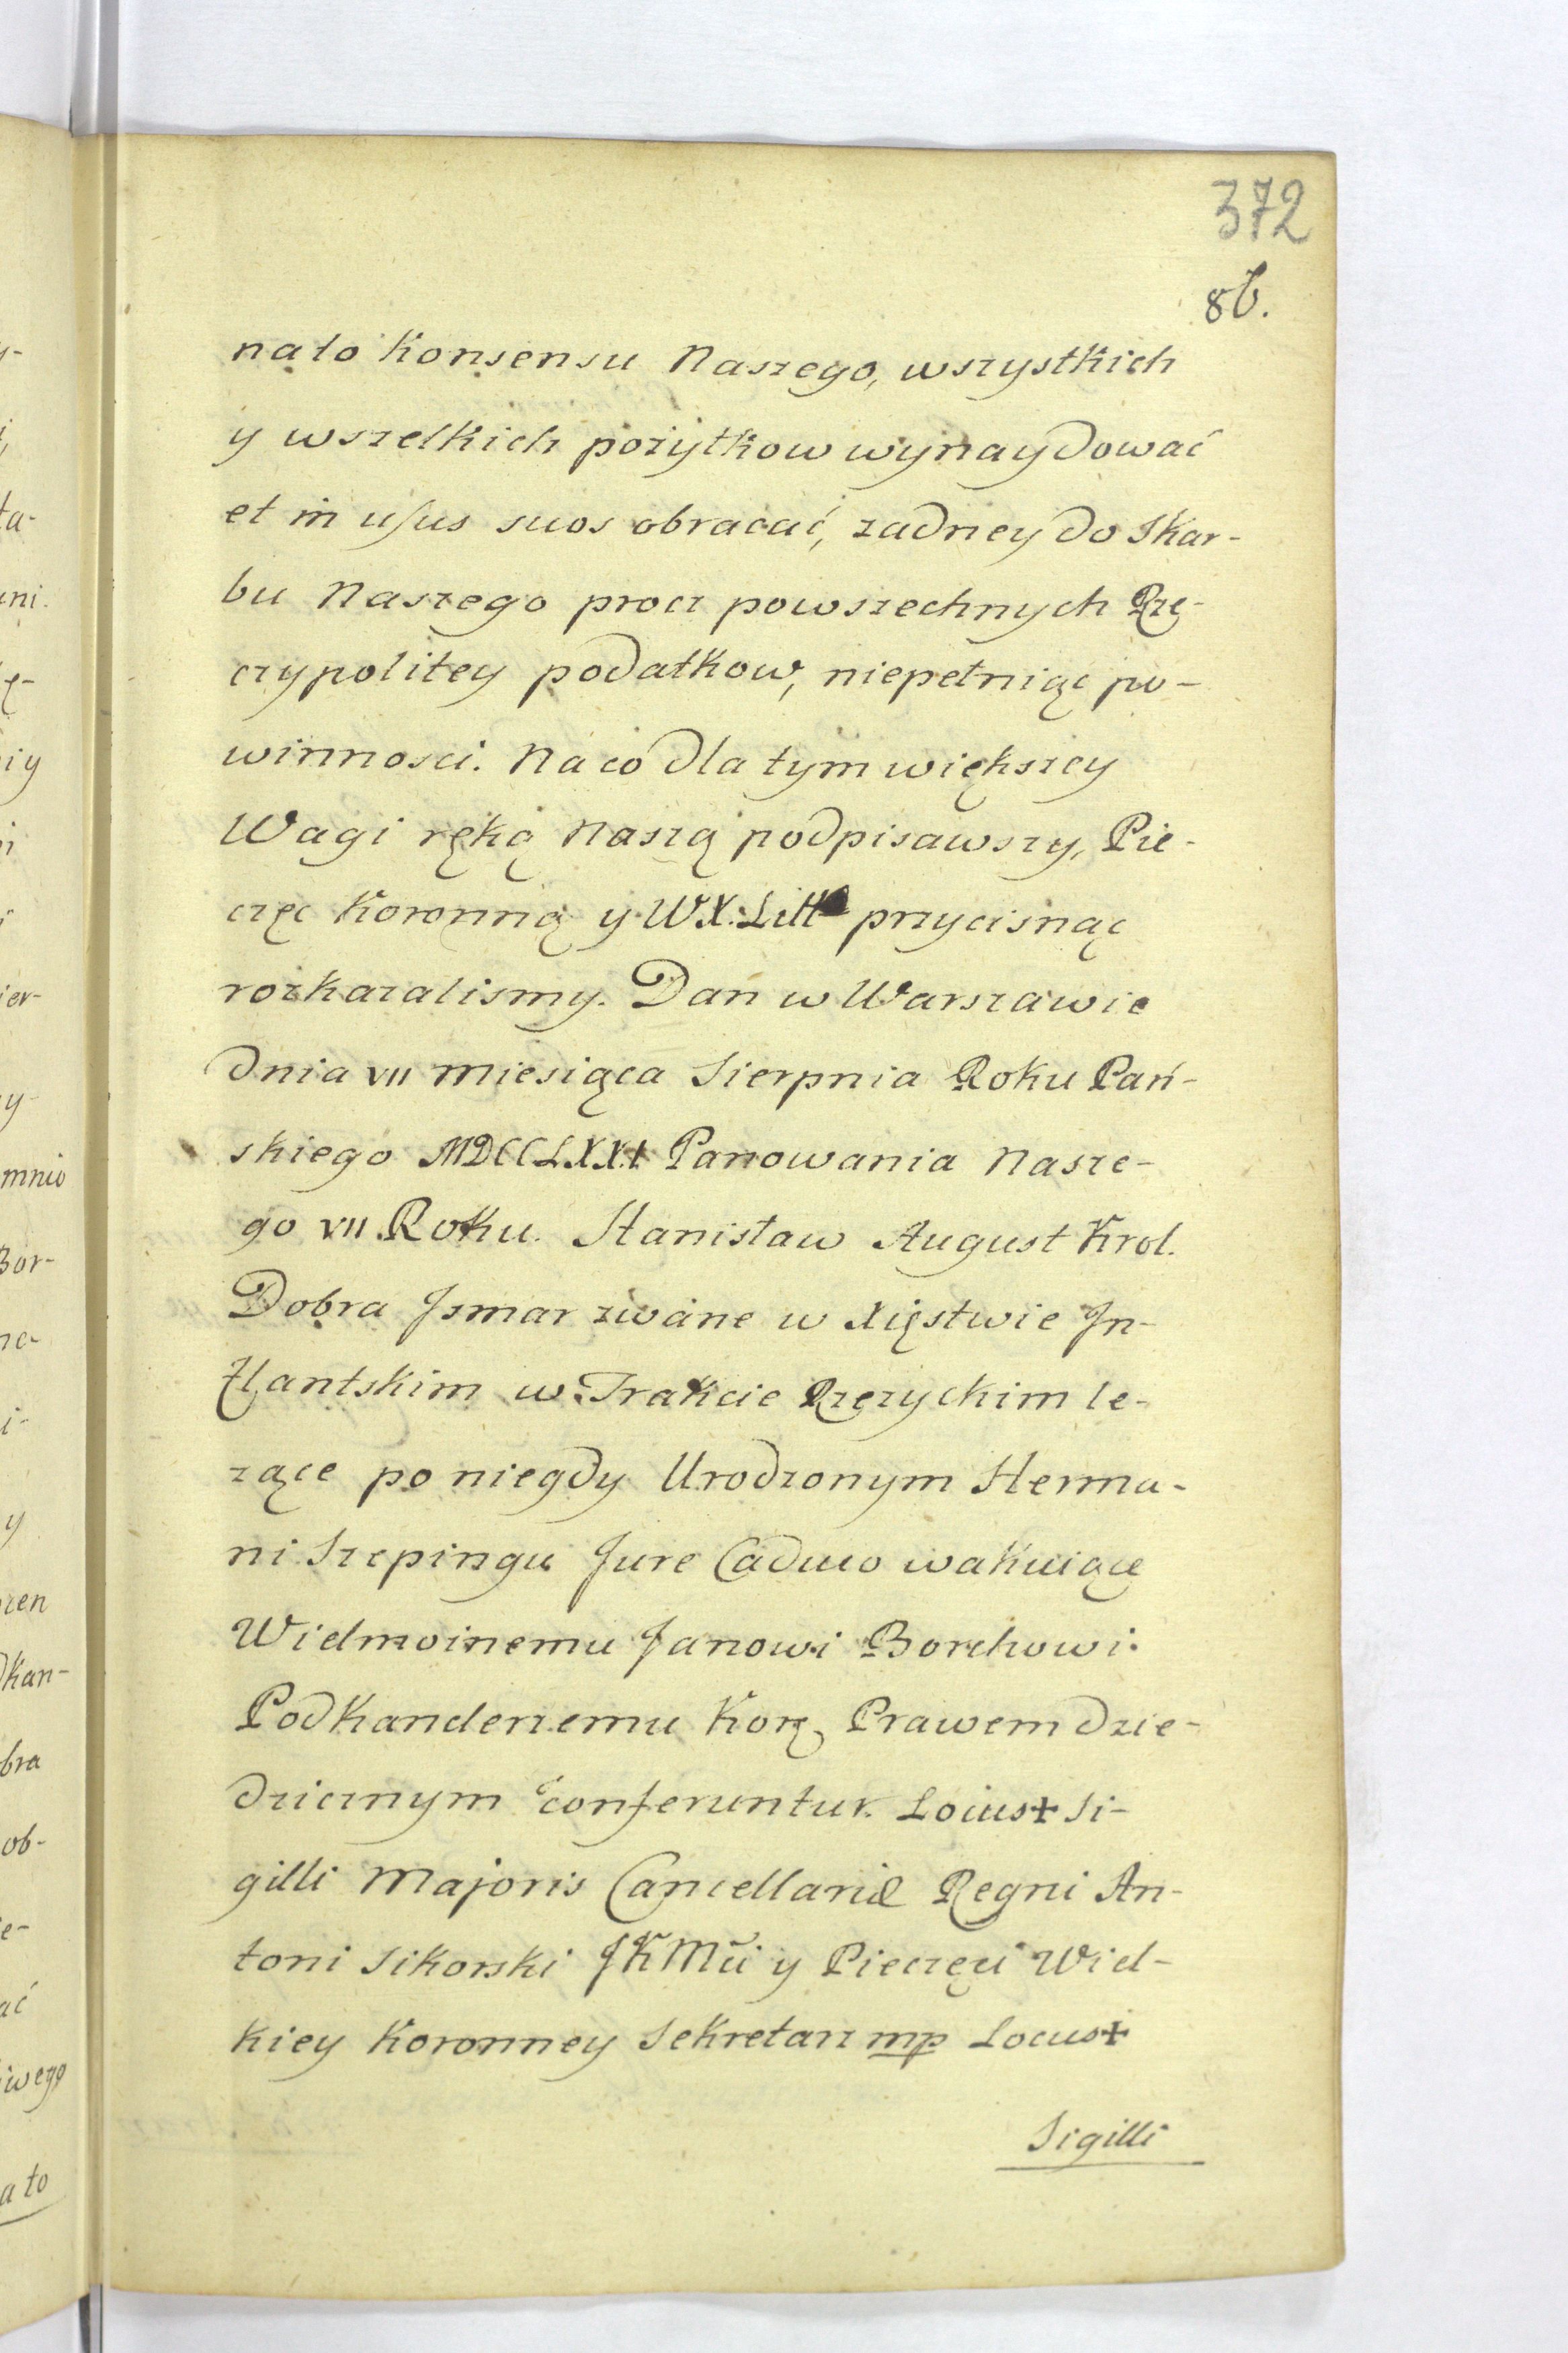 372
86.
nato Konsensu Naszego, wszystkich
y wszelkich pożytkow wynaydować
et in usus suos obracać, zadney do Skar-
bu Naszego procz powszechnych Rze-
czypolitey podatkow, niepełniąc po-
winnosci. Na co dla tym większey
Wagi ręką Naszą podpisawszy, Pie-
częc Koronną y WX. Litt przycisnąc
rozkazalismy. Dan w Warszawie
dnia VII Miesiąca Sierpnia Roku Pań-
skiego MDCCLXXI Panowania Nasze-
go VII Roku. Stanisław August Krol.
Dobra Ismar zwane w Xięstwie In-
flantskim w Trakcie Rzezyckim le-
zące po niegdy Urodzonym Herma-
ni Szepingu Jure Caduco wakuiące
Wielmoinemu Janowi Borchowi
Podkanclerzemu Kor. Prawem dzie-
dzicznym conferuntur. Locus + Si-
gilli Majoris Cancellariæ Regni An-
toni Sikorski JKMci y Pieczęci Wiel-
kiey Koronney Sekretarz mp Locus +
Sigilli
y-
ta-
ni.
ę-
iy
i
ier-
y-
mnio
Bor-
na-
i-
y
zen
dkan-
bra
ob-
e-
ać
iwego
a to